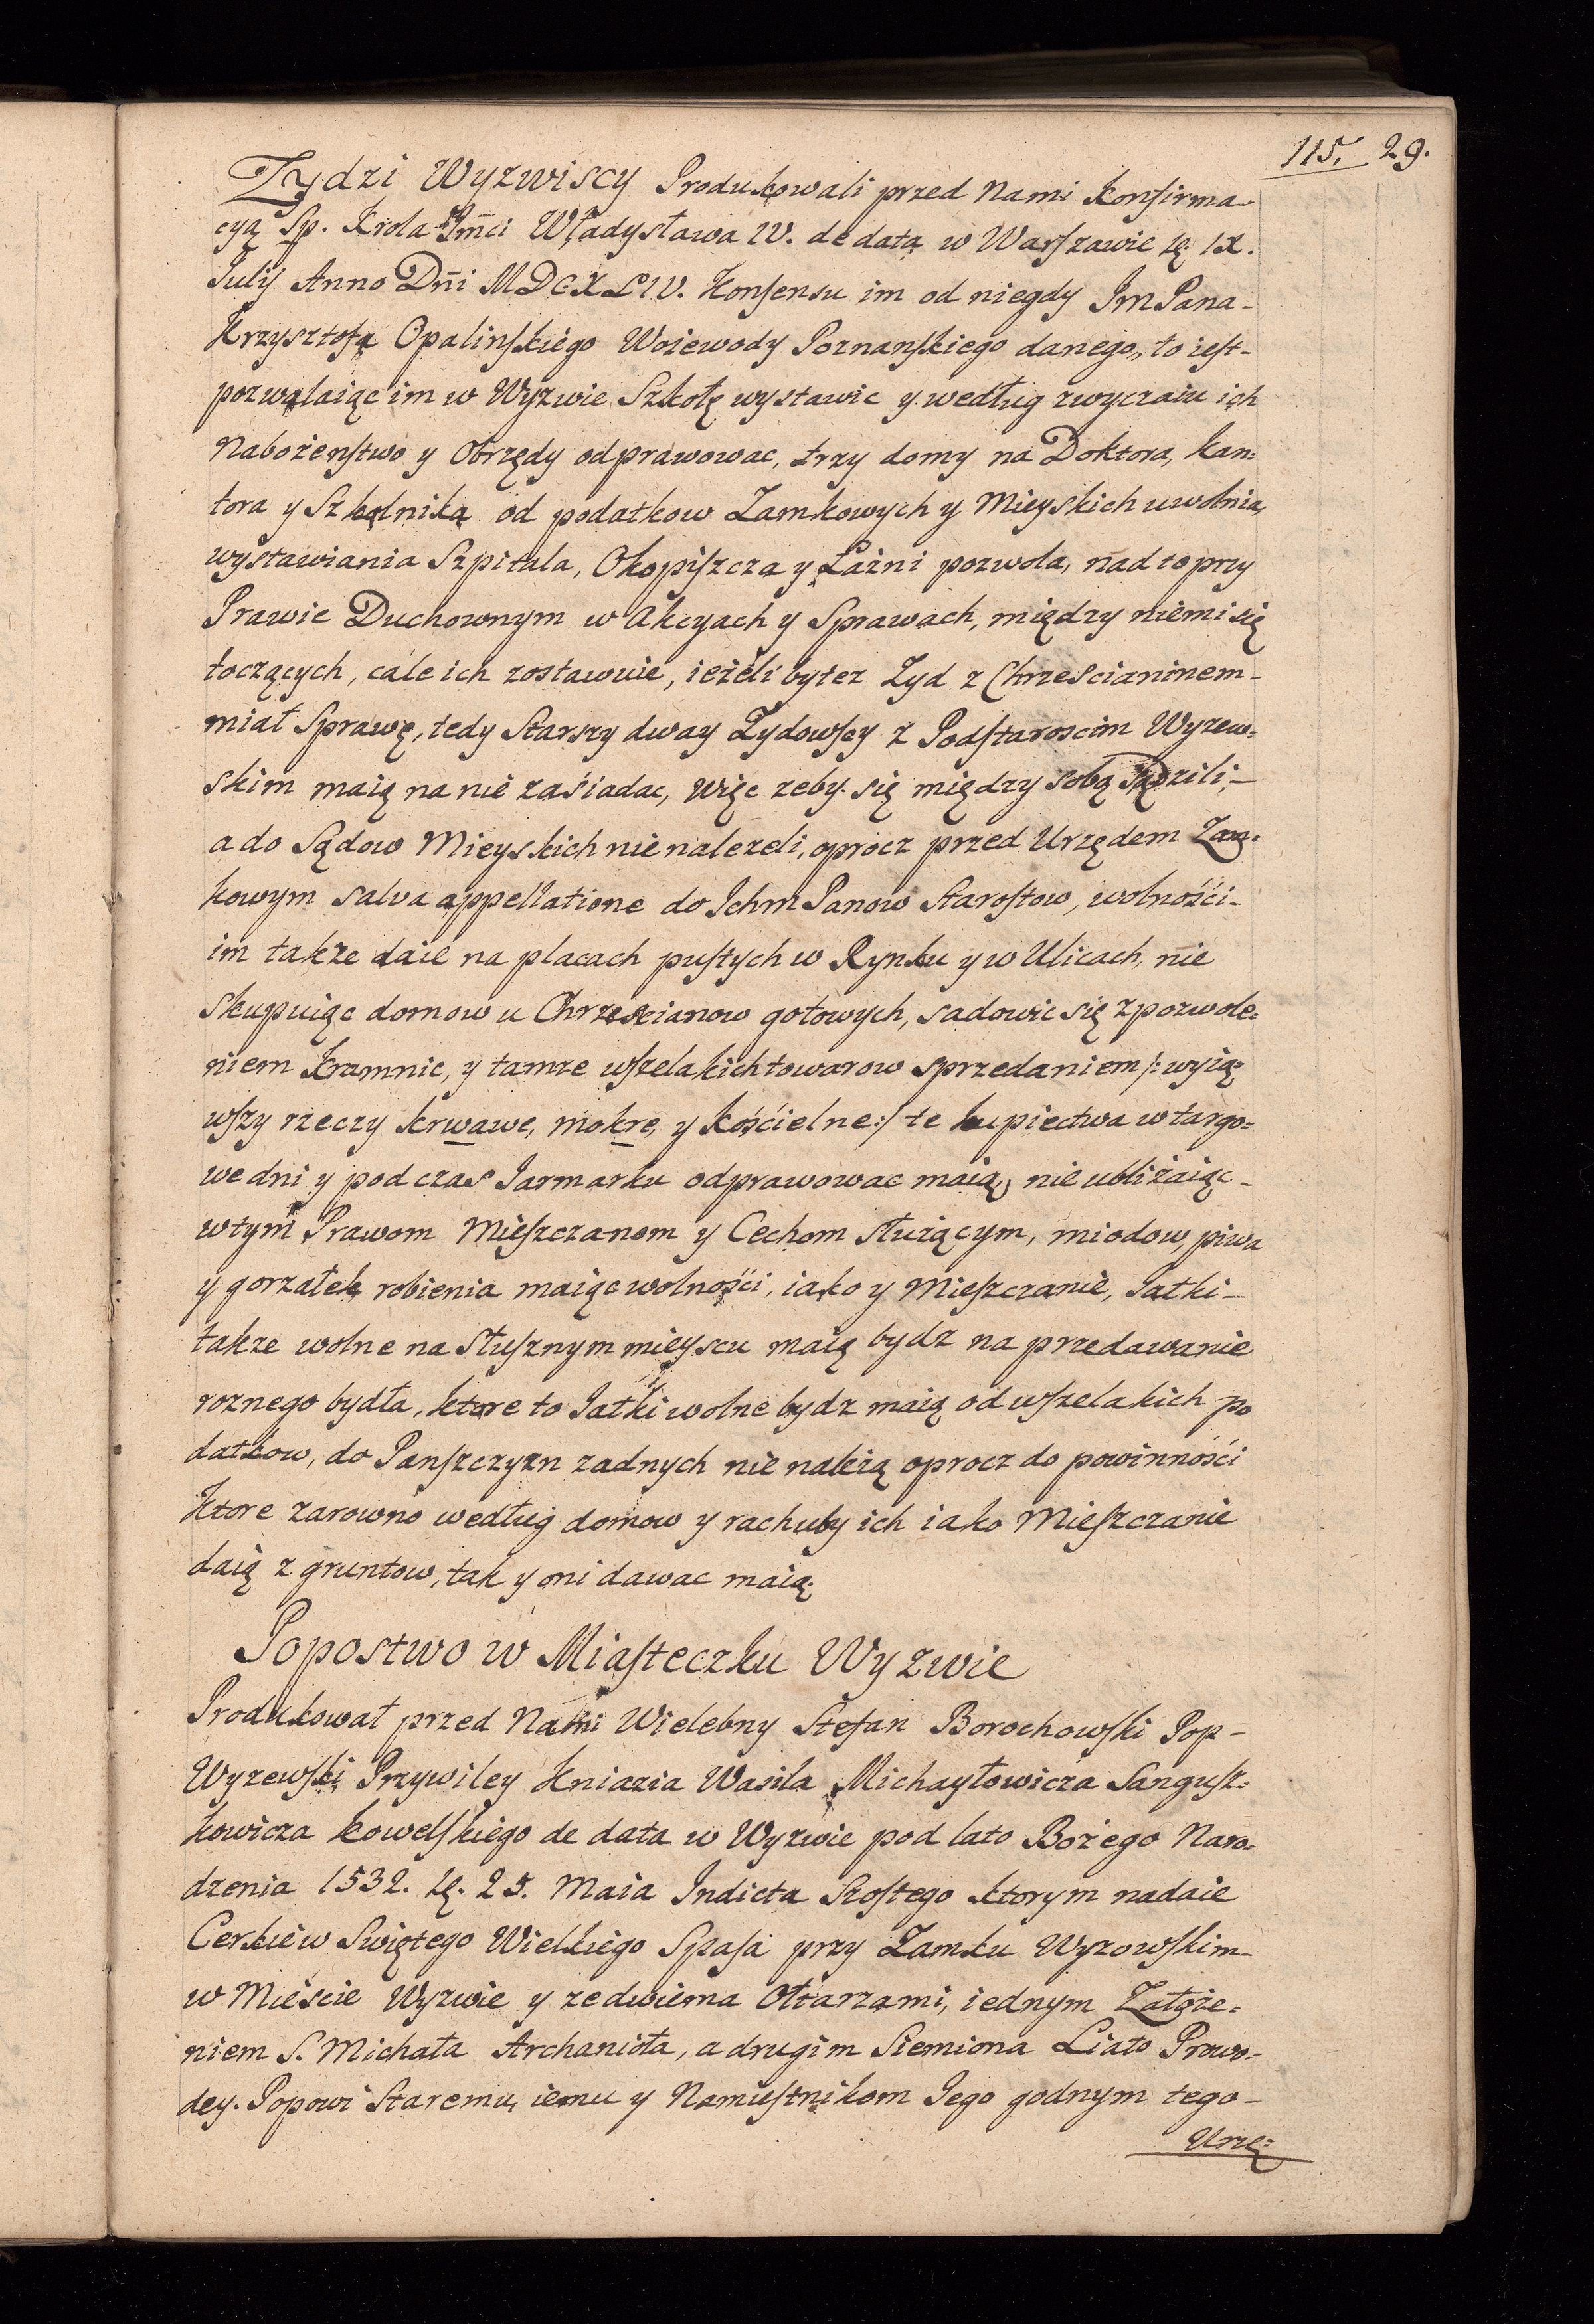 115. 29.
Zydzi Wyzwiscy Produkowali przed Nami Konfirma-
cyą Sp. Krola Jm̄ci Władysława IV. de data w Warszawie 1ę. IX.
Julij Anno Dn̄i MDCXLIV. Konsensu im od niegdy Jm Pana-
Krzysztofa Opalinskiego Woiewody Poznanskiego danego, to iest-
pozwalaiąc im w Wyzwie Szkołę wystawic y według zwyczaiu ich
Nabożenstwo y Obrzędy odprawowac, trzy domy na Doktora, kan=
tora y Szkolnika od podatkow Zamkowych y Mieyskich uwolnia,
wystawiania Szpitala, Okopiszcza y Łaźni pozwola, nad to przy
Prawie Duchownym w Akcyach y Sprawach, między niemi się
toczących, cale ich zostawuie, ieżeli by tez Zyd z Chrzescianinem-
miał Sprawę, tedy Starszy dway Zydowscy z Podstaroscim Wyzew=
skim maią na nie zasiadac, Więc zeby się między sobą sądzili,-
a do Sądow Mieyskich nie nalezeli, oprocz przed Urzędem Zam=
kowym salva appellatione do Ichm Panow Starostow, wolności-
im takze daie na placach pustych w Rynku y w Ulicach, nie
skupuiąc domow u Chrzescianow gotowych, sadowic się z pozwole=
niem kramnic, y tamze wszelakich towarow sprzedaniem /: wyią=
wszy rzeczy krwawe, mokre, y kościelne :/ te kupiectwa w targo=
we dni y podczas Jarmarku odprawowac maią, nie ubliżaiąc-
w tym Prawom Mieszczanom y Cechom służącym, miodow, piwa
y gorzałek robienia maiąc wolności, iako y Mieszczanie, Jatki-
takze wolne na słusznym mieyscu maią bydz na przedawanie
roznego bydła, ktore to Jatki wolne bydz maią od wszelakich po
datkow, do Panszczyzn zadnych nie należą oprocz do powinności
ktore zarowno według domow y rachuby ich iako Mieszczanie
daią z gruntow, tak y oni dawac maią.
Popostwo w Miasteczku Wyzwie
Produkował przed Nami Wielebny Stefan Borochowski Pop-
Wyzewski Przywiley Kniazia Wasila Michayłowicza Sangusz=
kowicza Kowelskiego de data w Wyzwie pod lato Bożego Naro=
dzenia 1532. 1ę. 25. Maia Indicta Szostego ktorym nadaie
Cerkiew Swiętego Wielkiego Spasa przy Zamku Wyzowskim-
w Mieście Wyzwie y ze dwiema Ołtarzami, iednym Załoze=
niem S. Michała Archanioła, a drugim Siemiona Liato Prowo=
dey. Popowi Staremu, iemu y Namiestnikom Jego godnym tego-
Urzę=